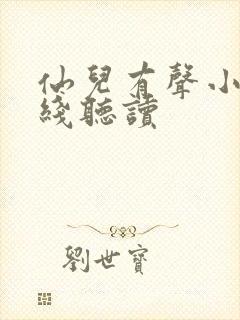 仙兒有聲小
綫聽讀
劉世寶